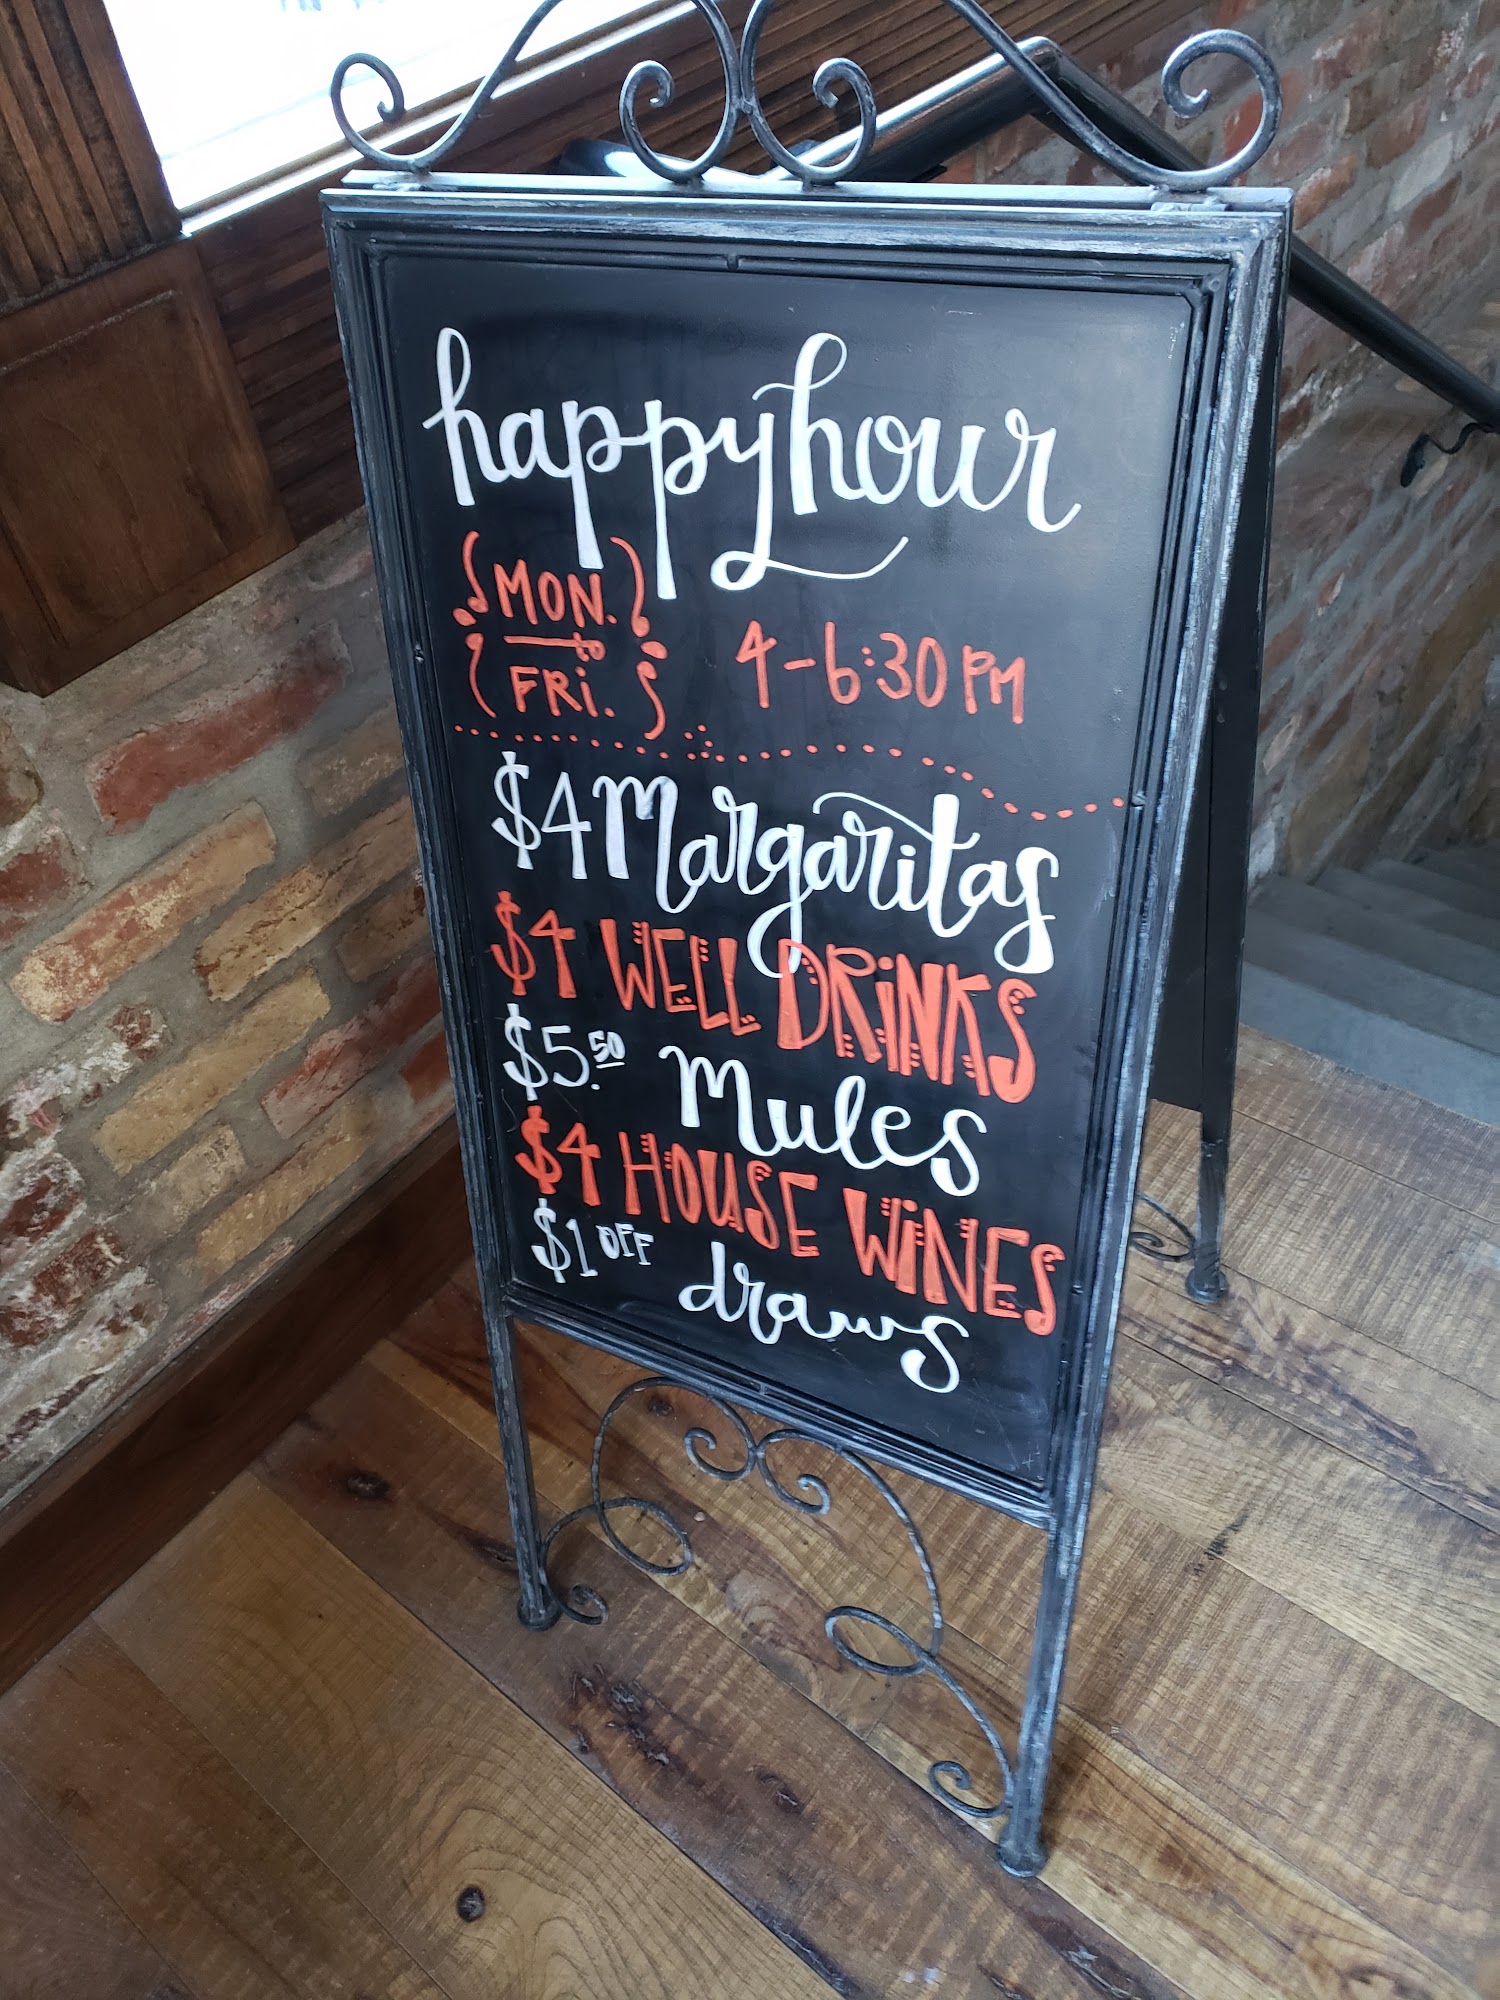 happy hour
MON.
to
FRi.
4-6:30 PM
$4 Margaritas
$4 WELL DRiNKS
$5.50 Mules
$4 HOUSE WiNES
$1 OFF draws